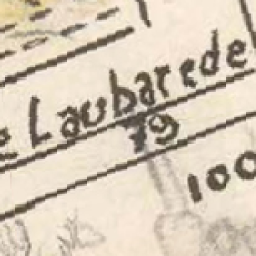 e Laubarede
79
100